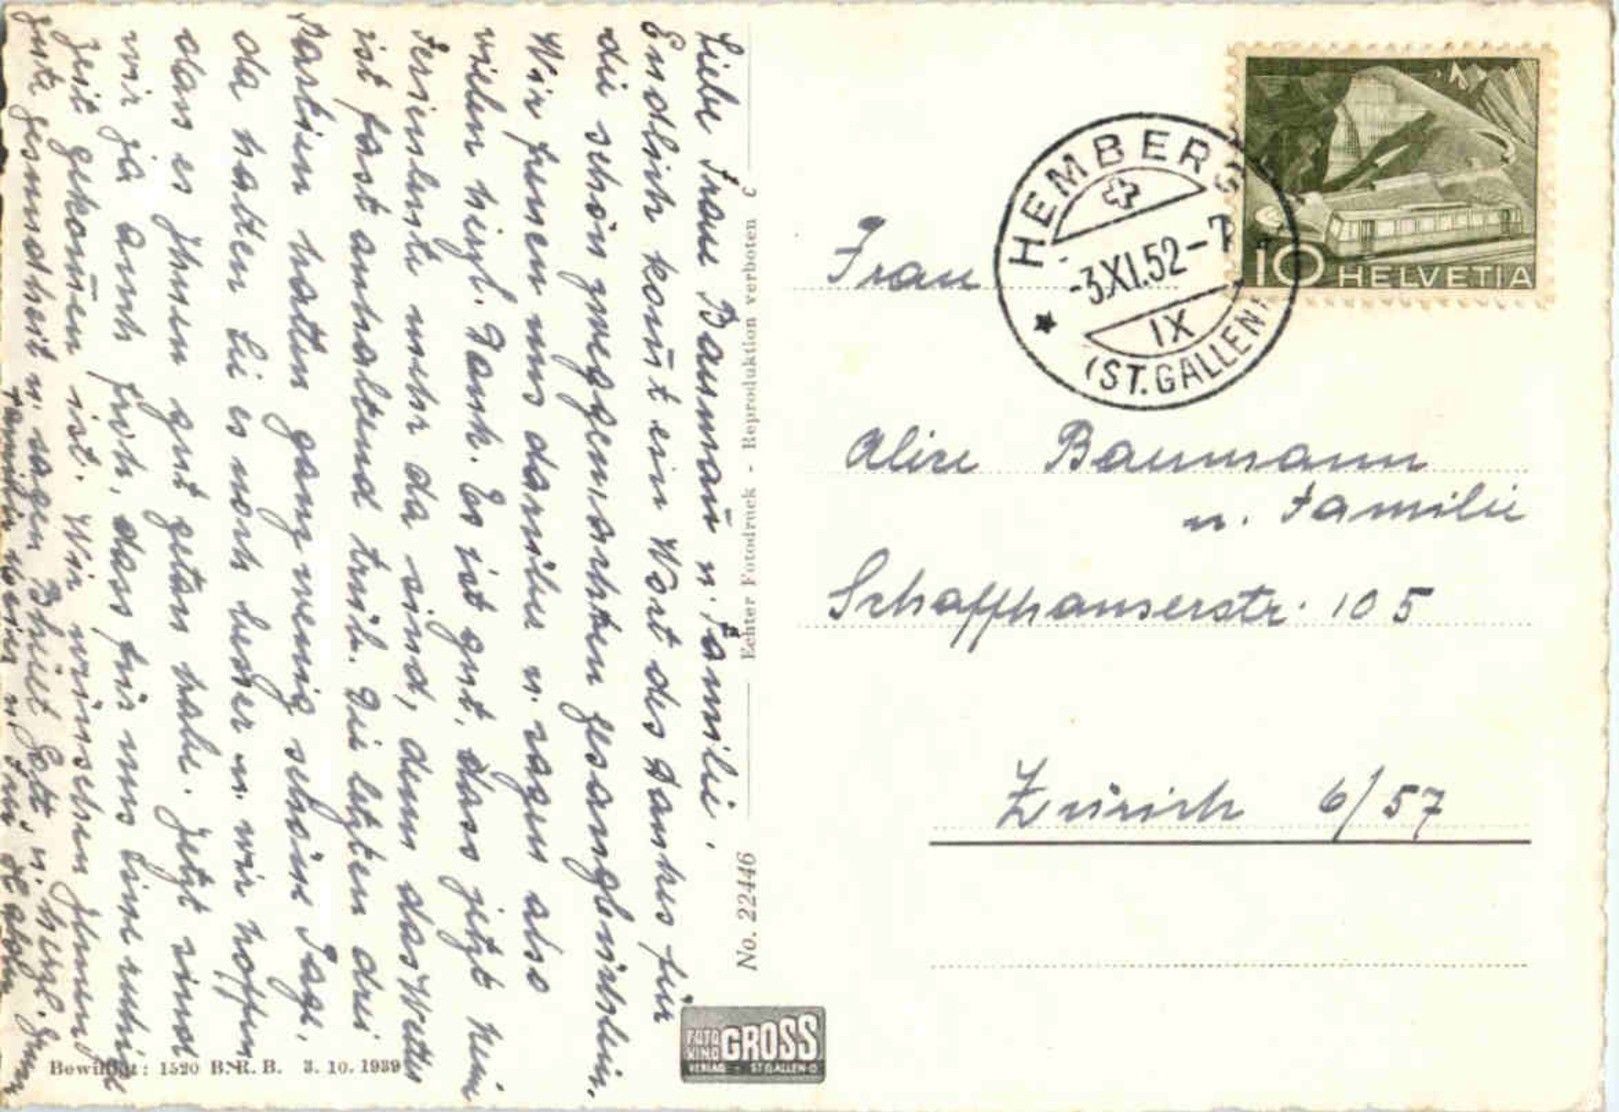 Liebe Frau Baumañ u. Familie.
Endlich kom̄t ein Wort des Dankes für
die schön zweggemachten Gesangbüchlein.
Wir freuen uns darüber u. sagen also
vielen herzl. Dank. Es ist gut, dass jetzt keine
Ferienleute mehr da sind, denn das Wetter
ist fast anhaltend trüb. Die letzten drei
Partien hatten ganz wenig schöne Tage,
da hatten Sie es noch besser u. wir hoffen
dass es Ihnen gut getan habe. Jetzt sind
wir ja auch froh, dass für uns eine ruhige
Zeit gekom̄en ist. Wir wünschen Ihnen
gute Gesundheit u. sagen Bhüet Gott, u. herzl.
Familie
No. 22446 Echter Fotodruck - Reproduktion verboten c
Bewilligt: 1520 B.R.B. 3. 10. 1939
FOTO KINO GROSS
VERLAG - ST GALLEN-O
HEMBERG
-3.XI.52-7
IX
(ST. GALLEN)
10 HELVETIA
Frau
Alice Baumann
u. Familie
Schaffhauserstr. 105
Zürich 6/57